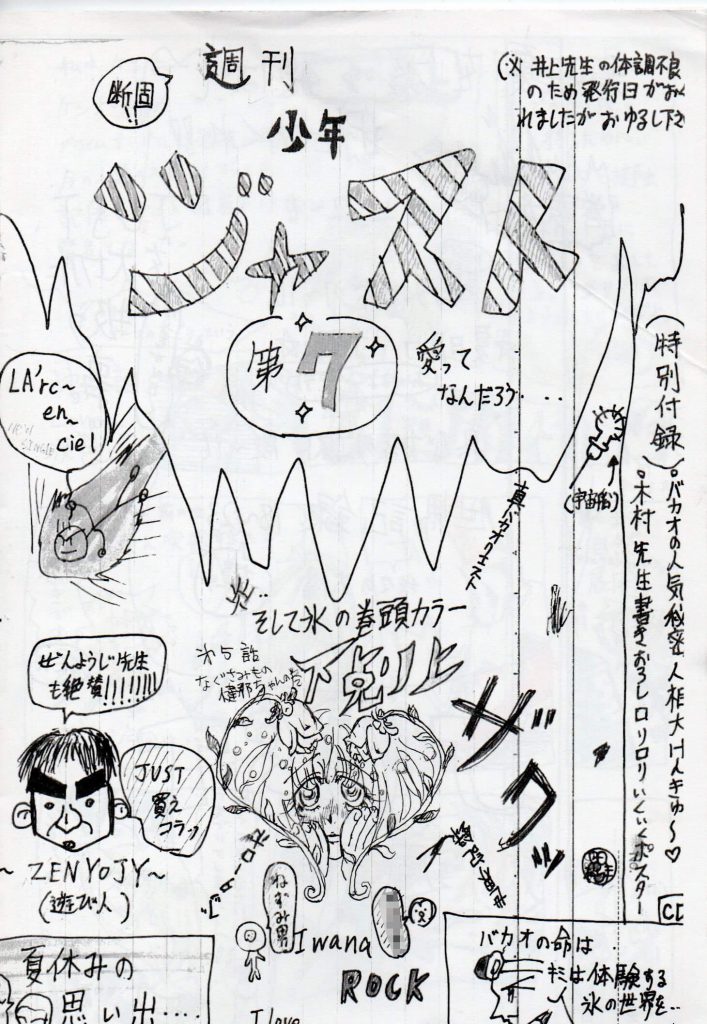 断固
週刊
少年
ジャスト
第7
愛って
なんだろう・・・・
(※ 井上先生の体調不良
のため発行日がおく
れましたがおゆるし下さ
特別付録
・バカオの人気秘密人相大けんきゅ〜♡
・木村先生書きおろしロリロリいくいくポスター
LA'rc~
en~
ciel
NEW
SINGLE
(宇宙船)
真バカオクエスト
そして氷の巻頭カラー
下剋上
第5話
ザクッ
ぜんようじ先生
も絶賛!!!!!!!
JUST
買え
コラッ
~ ZENYOJY~
(遊び人)
ねずみ男
I wana
ROCK
I love
夏休みの
思い出・・・・
バカオの命は
キミは体験する
氷の世界を・・